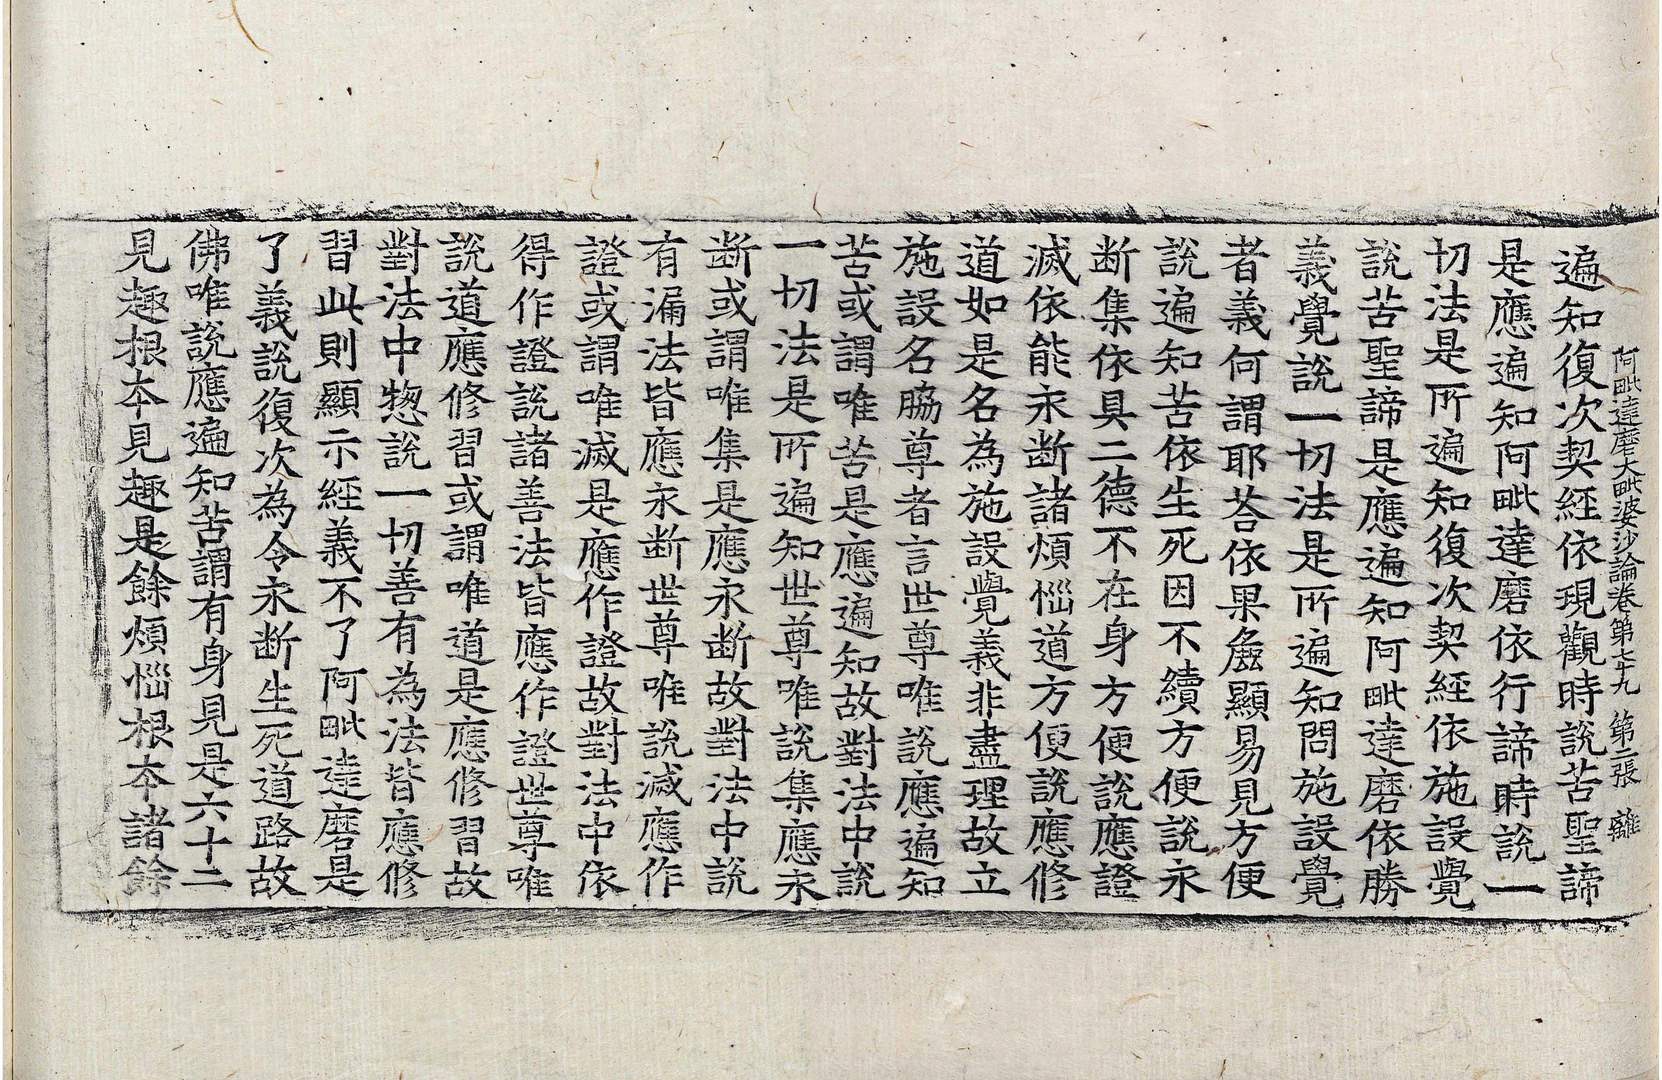 阿毗達磨大毗婆沙論卷第七十九 第二張 離
遍知復次契經依現觀時說苦聖諦
是應遍知阿毗達磨依行諦時說一
切法是所遍知復次契經依施設覺
說苦聖諦是應遍知阿毗達磨依勝
義覺說一切法是所遍知問施設覺
者義何謂耶荅依果麁顯易見方便
說遍知苦依生死因不續方便說永
断集依具二德不在身方便說應證
滅依能永断諸煩惱道方便說應修
道如是名為施設覺義非盡理故立
施設名脇尊者言世尊唯說應遍知
苦或謂唯苦是應遍知故對法中說
一切法是所遍知世尊唯說集應永
断或謂唯集是應永断故對法中說
有漏法皆應永断世尊唯說滅應作
證或謂唯滅是應作證故對法中依
得作證說諸善法皆應作證世尊唯
說道應修習或謂唯道是應修習故
對法中惣說一切善有為法皆應修
習此則顯示經義不了阿毗達磨是
了義說復次為令永断生死道路故
佛唯說應遍知苦謂有身見是六十二
見趣根本見趣是餘煩惱根本諸餘